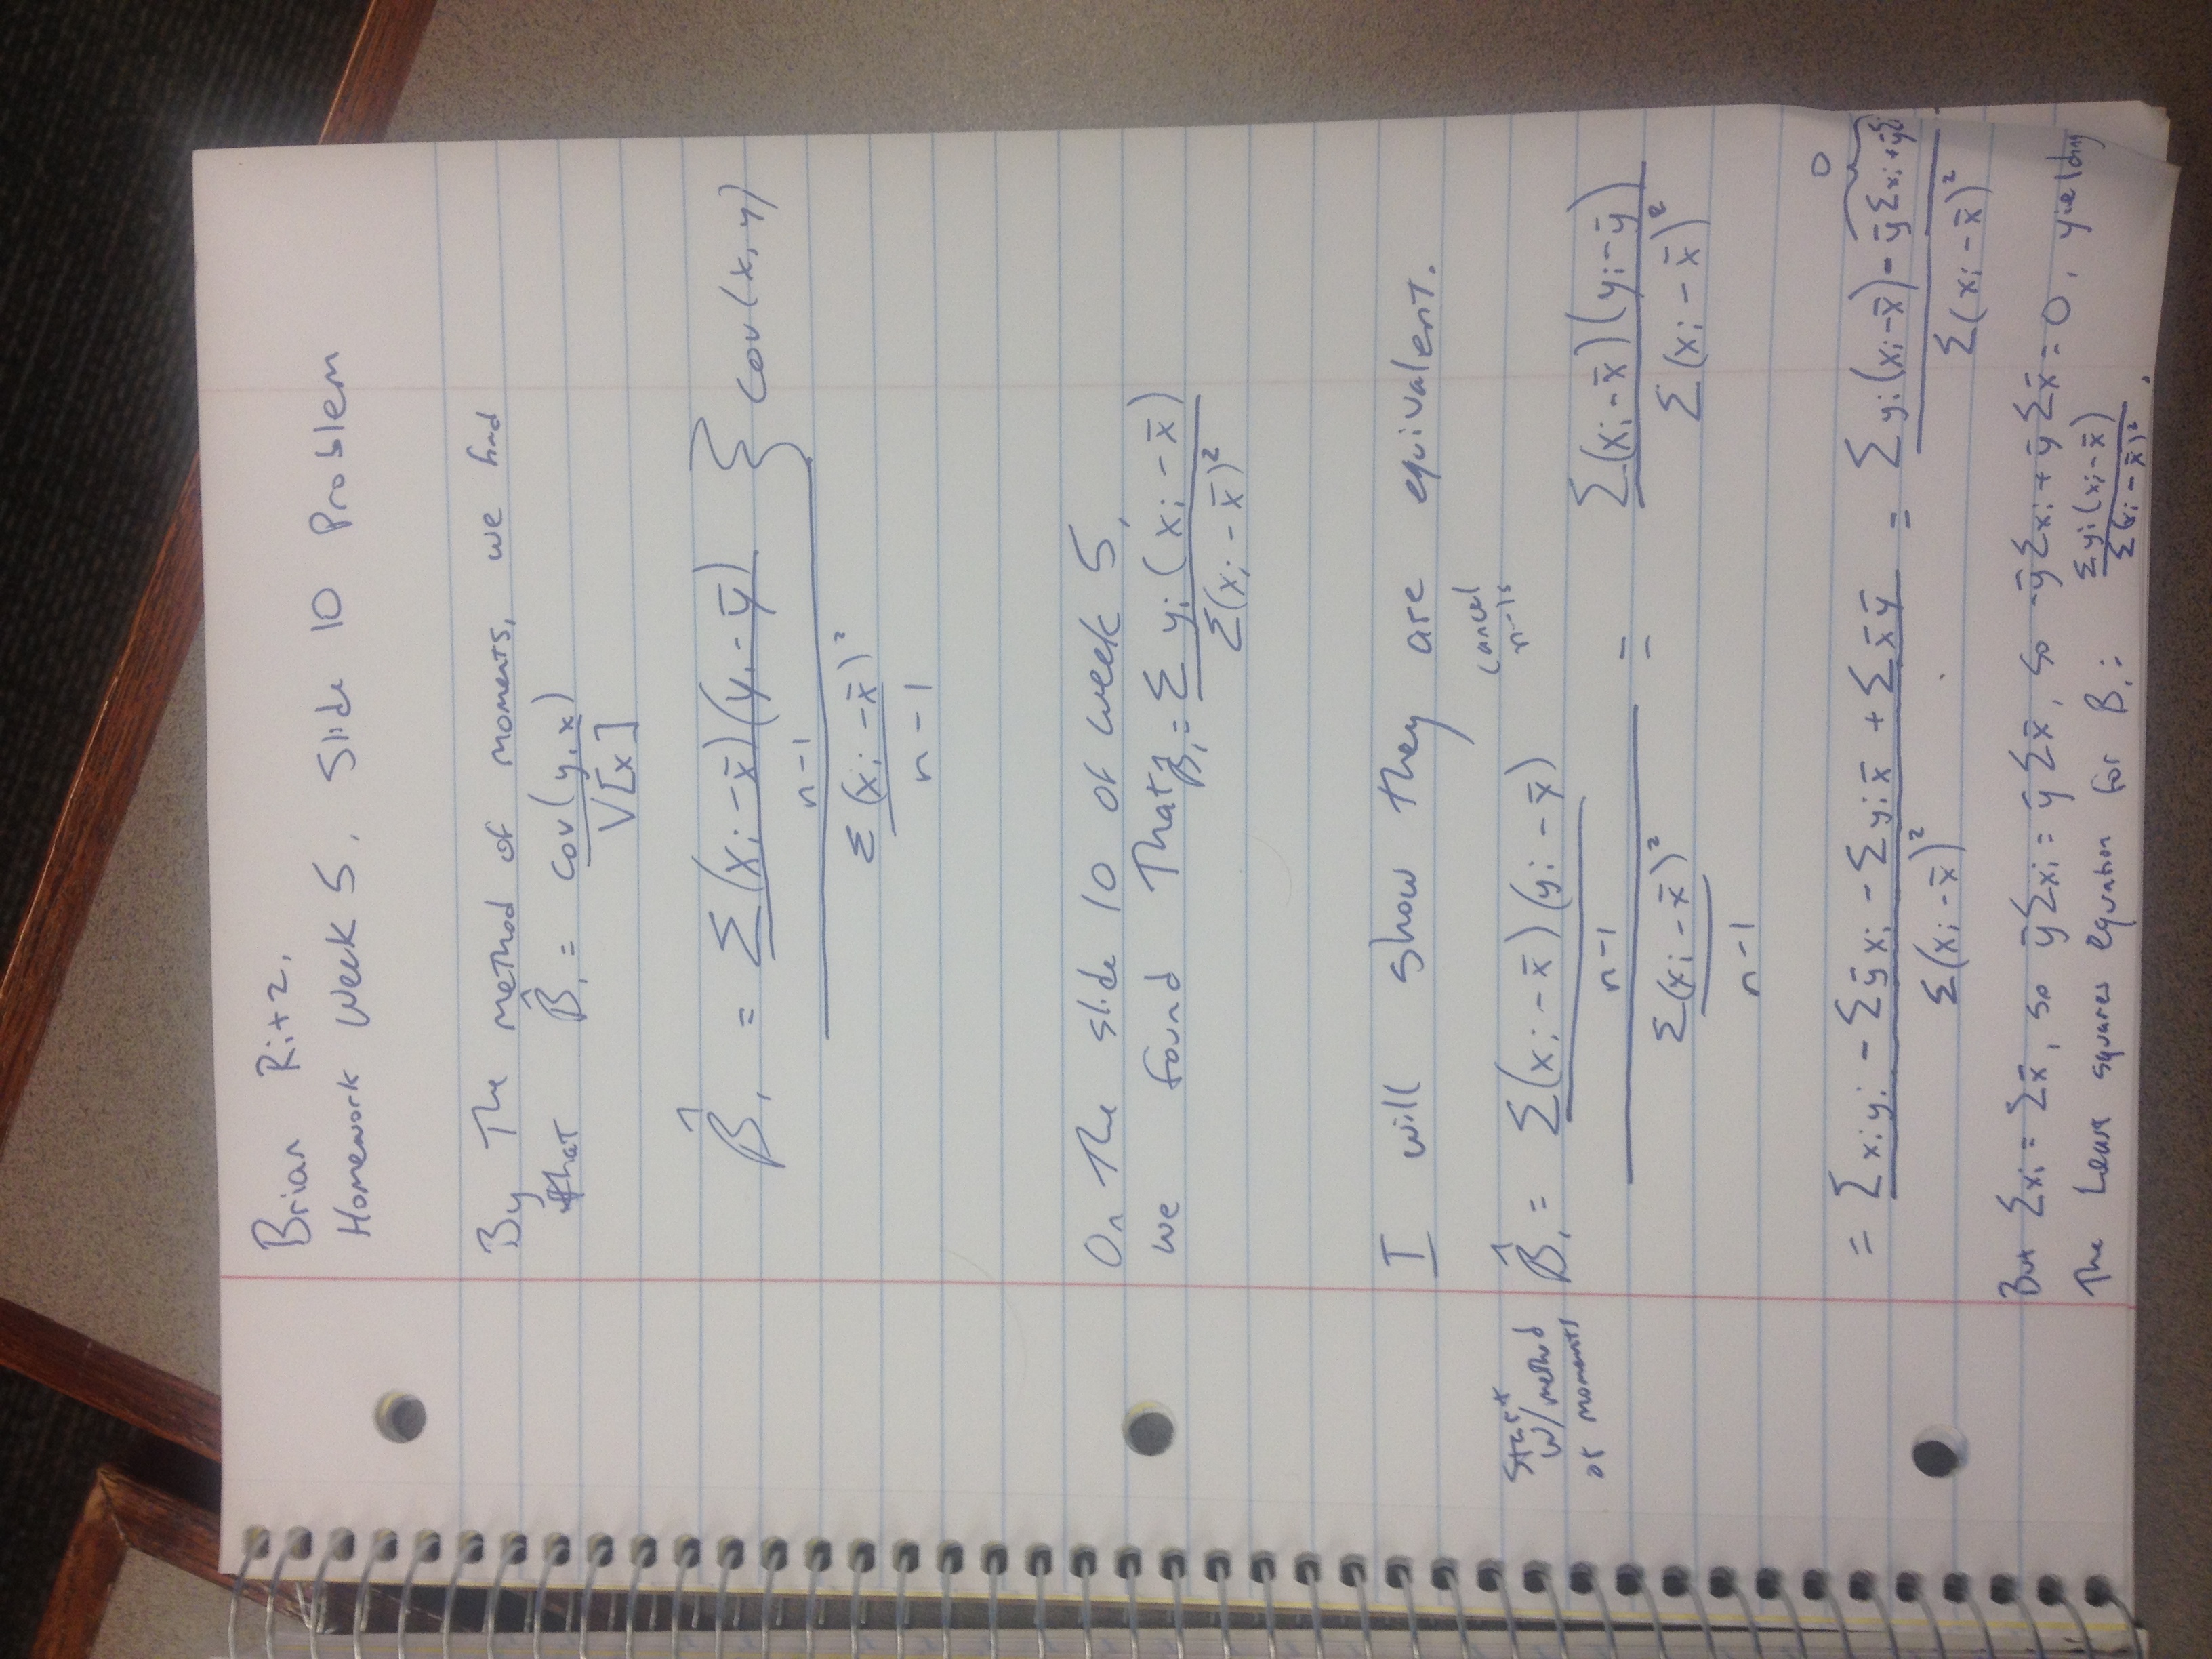 Brian Ritz,
Homework Week 5, Slide 10 Problem
By The method of moments, we find
that B̂₁ = cov(y,x) / V[x]
B̂₁ = (Σ(xᵢ-x̄)(yᵢ-ȳ) / n-1) / (Σ(xᵢ-x̄)² / n-1) } cov(x,y)
On The slide 10 of week 5,
we found That B̂₁ = Σyᵢ(xᵢ-x̄) / Σ(xᵢ-x̄)²
I will show they are equivalent.
cancel
n-1s
Start
w/method
of moments
B̂₁ = (Σ(xᵢ-x̄)(yᵢ-x̄) / n-1) / (Σ(xᵢ-x̄)² / n-1) = Σ(xᵢ-x̄)(yᵢ-ȳ) / Σ(xᵢ-x̄)²
0
= (Σxᵢyᵢ - Σȳxᵢ - Σyᵢx̄ + Σx̄ȳ) / Σ(xᵢ-x̄)² = (Σyᵢ(xᵢ-x̄) - ȳΣxᵢ + ȳΣ / Σ(xᵢ-x̄)²
But Σxᵢ = Σx̄, so ȳΣxᵢ = ȳΣx̄, so -ȳΣxᵢ + ȳΣx̄ = 0, yielding
The Least squares equation for B₁: Σyᵢ(xᵢ-x̄) / Σ(xᵢ-x̄)².